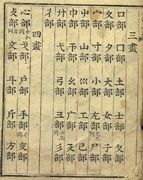 三畫
口部 囗部 土部 士部 夂部
夊部 夕部 大部 女部 子部
宀部 寸部 小部 尢部 尸部
屮部 山部 巛部 工部 己部
巾部 干部 幺部 广部 廴部
廾部 弋部 弓部 彐部 彡部
彳部
四畫
心部 戈部 戶部 手部 支部
攴部 文部 斗部 斤部 方部